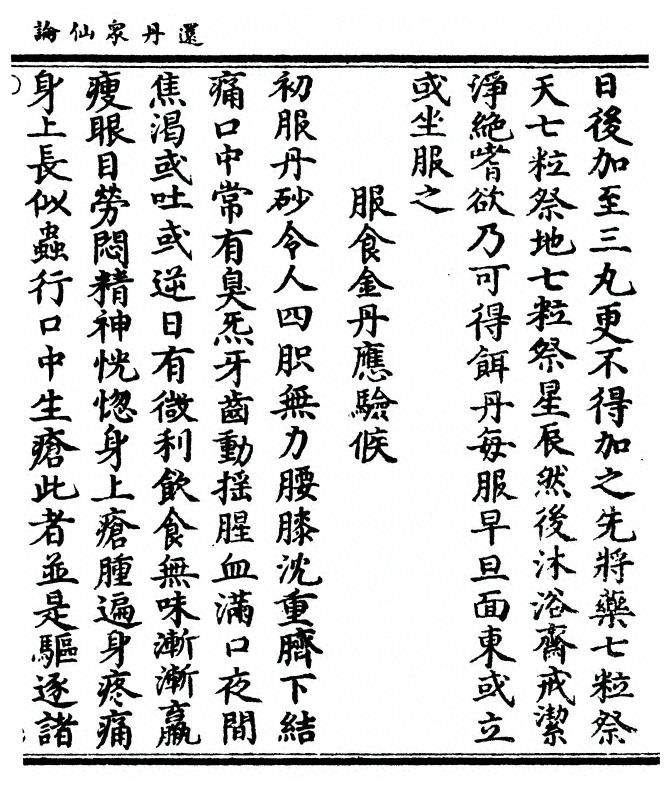 還丹衆仙論
日後加至三九更不得加之先將藥七粒祭
天七粒祭地七粒祭星辰然後沐浴齋戒潔
淨絶嗜欲乃可得餌丹每服早旦面東或立
或坐服之
服食金丹應驗候
初服丹砂令人四肶無力腰膝沈重臍下結
痛口中常有臭炁牙齒動揺腥血滿口夜間
焦渴或吐或逆日有微利飲食無味漸漸羸
瘦眼目勞悶精神恍惚身上瘡腫遍身疼痛
身上長似蟲行口中生瘡此者並是驅逐諸